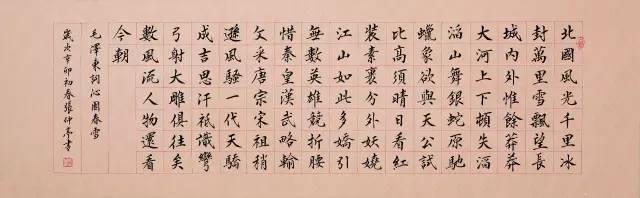 北國風光千里冰
封萬里雪飄望長
城內外惟餘莽莽
大河上下頓失滔
滔山舞銀蛇原馳
蠟象欲與天公試
比高須晴日看紅
裝素裹分外妖嬈
江山如此多嬌引
無數英雄競折腰
惜秦皇漢武略輸
文采唐宗宋祖稍
遜風騷一代天驕
成吉思汗祇識彎
弓射大雕俱往矣
數風流人物還看
今朝
毛澤東詞沁園春雪
歲次辛卯初春張仲亭書